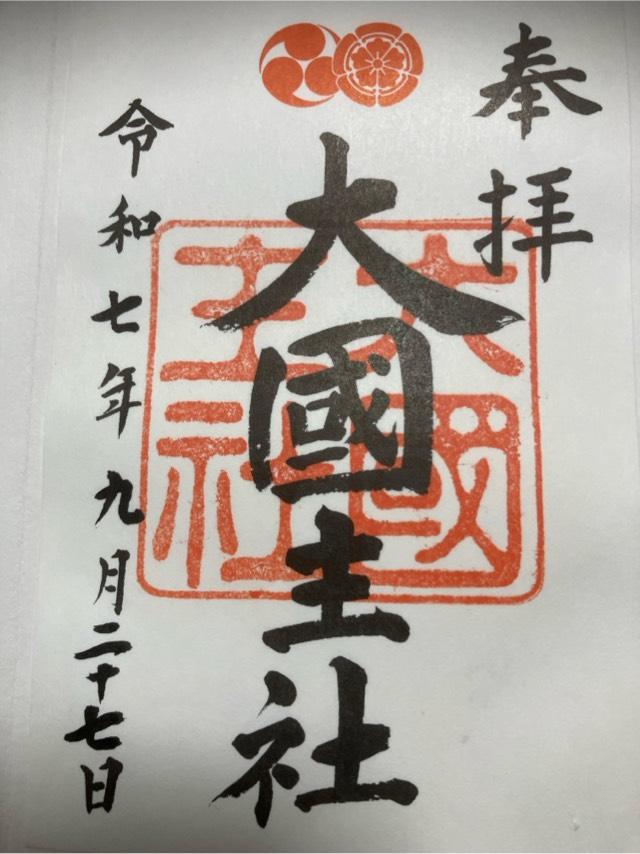 奉拝
大國主社
大國主社
令和七年九月二十七日